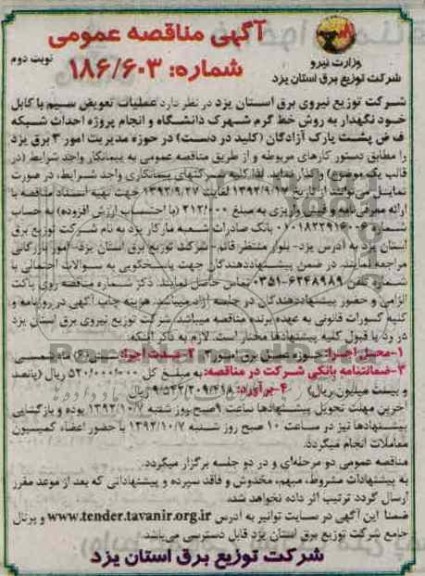 آگهی مناقصه عمومی
شماره: ۱۸۶/۶۰۳
نوبت دوم
وزارت نیرو
شرکت توزیع برق استان یزد
شرکت توزیع نیروی برق استان یزد در نظر دارد عملیات تعویض سیم با کابل
خود نگهدار به روش خط گرم شهرک دانشگاه و انجام پروژه احداث شبکه
ف ض پشت پارک آزادگان (کلید در دست) در حوزه مدیریت امور ۳ برق یزد
را مطابق دستور کارهای مربوطه و از طریق مناقصه عمومی به پیمانکار واجد شرایط (در
قالب یک موضوع) واگذار نماید. لذا کلیه شرکتهای پیمانکاری واجد شرایط، در صورت
تمایل می‌توانند از تاریخ لغایت ۱۳۹۲/۹/۲۷ جهت تهیه اسناد مناقصه با
ارائه معرفی نامه و فیش واریزی به مبلغ ۲۱۲/۰۰۰ (با احتساب ارزش افزوده) به حساب
شماره ۰۱۰۱۸۲۲۹۱۶۰۰۶ بانک صادرات شعبه مارکار یزد به نام شرکت توزیع برق
استان یزد به آدرس یزد- بلوار منتظر قائم- شرکت توزیع برق استان یزد- امور بازرگانی
مراجعه نمایند. در ضمن پیشنهاددهندگان جهت پاسخگویی به سوالات احتمالی با
شماره تلفن ۶۲۴۸۹۸۹-۰۳۵۱ تماس حاصل نمایند. ذکر شماره مناقصه روی پاکت
الزامی و حضور پیشنهاددهندگان در جلسه آزاد میباشد. هزینه چاپ آگهی در روزنامه و
کلیه کسورات قانونی به عهده برنده مناقصه میباشد. شرکت توزیع نیروی برق استان یزد
در رد یا قبول کلیه پیشنهادها مختار است. لازم به ذکر آنکه:
۱-محل اجرا: حوزه عمل برق امور ۳ ۲-مدت اجرا: ماه شمسی
۳-ضمانتنامه بانکی شرکت در مناقصه: به مبلغ کل ۵۲۰/۰۰۰/۰۰۰ ریال (پانصد
و بیست میلیون ریال) ۴-برآورد: ۹/۵۴۲/۲۰۹/۴۱۸ ریال
آخرین مهلت تحویل پیشنهادها ساعت ۹ صبح روز شنبه ۱۳۹۲/۱۰/۷ بوده و بازگشایی
پیشنهادها نیز در ساعت ۱۰ صبح روز شنبه ۱۳۹۲/۱۰/۷ با حضور اعضاء کمیسیون
معاملات انجام میگردد.
مناقصه عمومی دو مرحله‌ای و در دو جلسه برگزار میگردد.
به پیشنهادات مشروط، مبهم، مخدوش و فاقد سپرده و پیشنهاداتی که بعد از موعد مقرر
ارسال گردد ترتیب اثر داده نخواهد شد.
ضمنا این آگهی در سایت توانیر به آدرس www.tender.tavanir.org.ir و پرتال
جامع شرکت توزیع برق استان یزد قابل دسترسی می‌باشد.
شرکت توزیع برق استان یزد